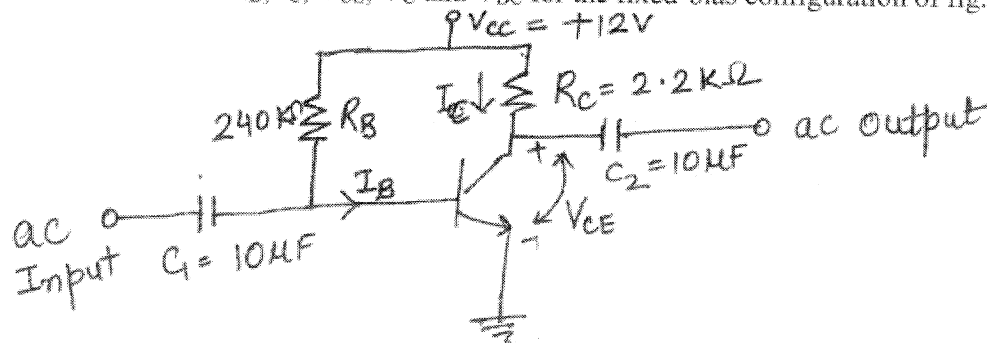 and V for the fixed-bias configuration of fig.
VCC = +12V
IC RC = 2.2KΩ
240KΩ RB
ac output
C2 = 10μF
IB
VCE
ac Input
C1 = 10μF
+
-